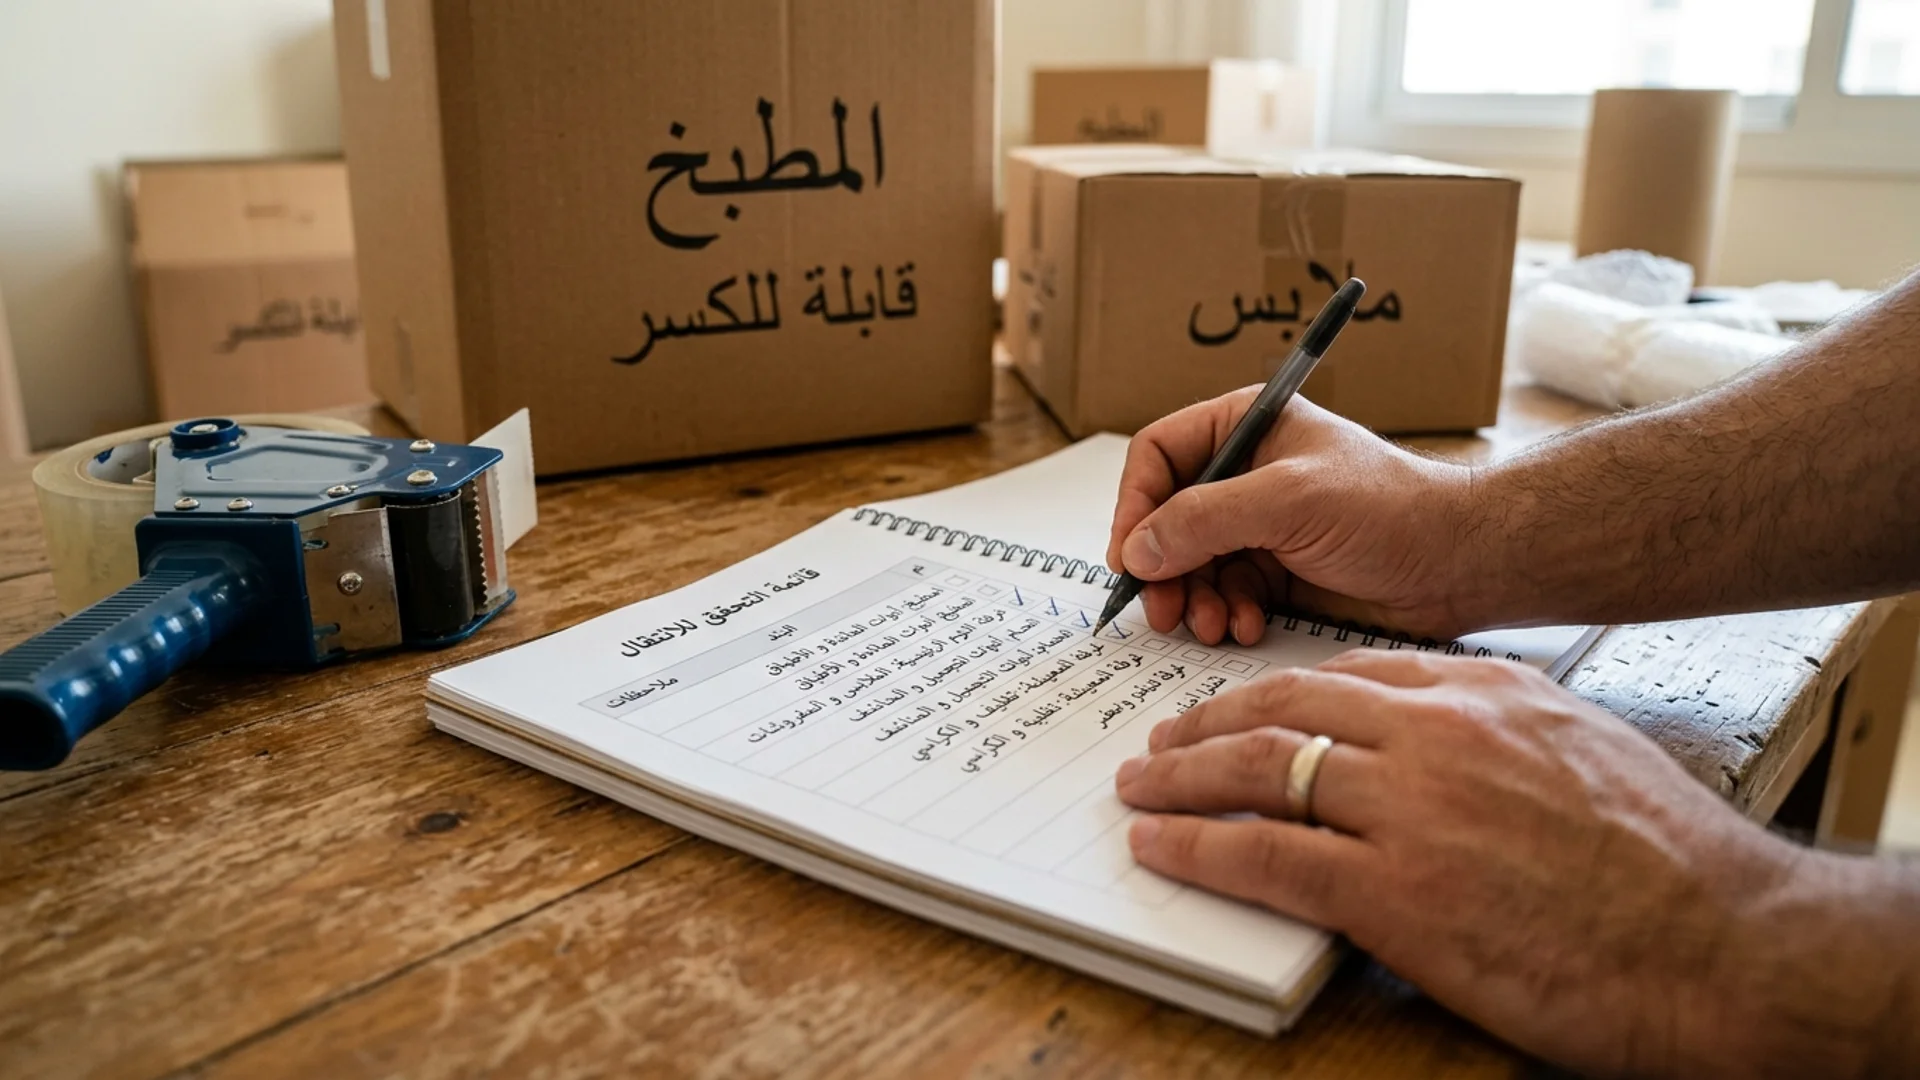 المطبخ
قابلة للكسر
ملابس
المطبخ
قابلة للكسر
قائمة التحقق للانتقال
البند
ملاحظات
المطبخ: أدوات المائدة و الأطباق
المطبخ: أدوات المائدة و أطباق
غرفة النوم الرئيسية: الملابس و المفروشات
الحمام: أدوات التجميل و المناشف
الحمام: أدوات التجميل و المناشف
غرفة المعيشة: و الكراسي
غرفة المعيشة: و الكراسي